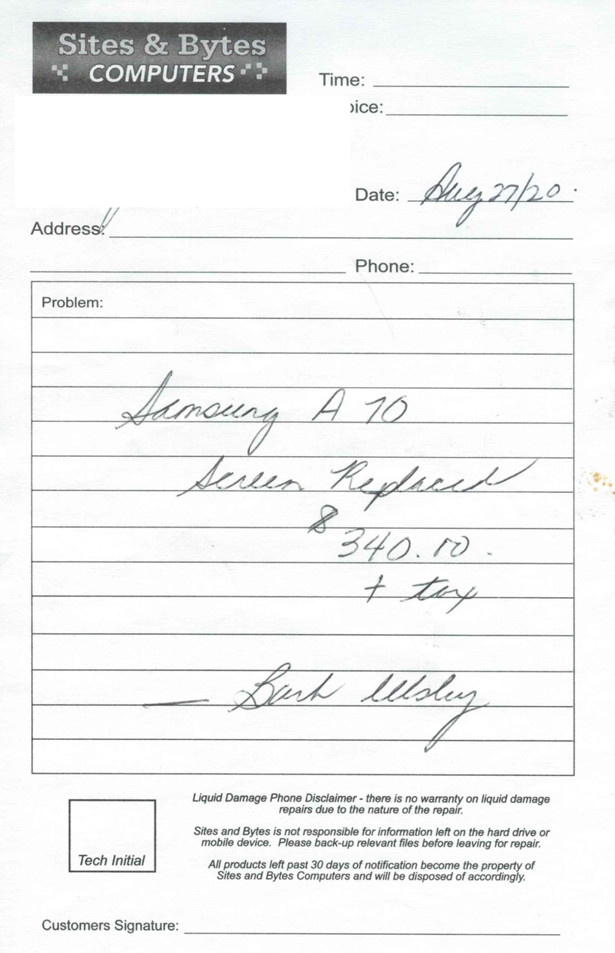 Sites & Bytes
COMPUTERS
Time:
oice:
Date: Aug 27/20.
Address:
Phone:
Problem:
Samsung A 70
Screen Replaced
$
340.00.
+ tax
Liquid Damage Phone Disclaimer - there is no warranty on liquid damage
repairs due to the nature of the repair.
Sites and Bytes is not responsible for information left on the hard drive or
mobile device. Please back-up relevant files before leaving for repair.
All products left past 30 days of notification become the property of
Sites and Bytes Computers and will be disposed of accordingly.
Tech Initial
Customers Signature: